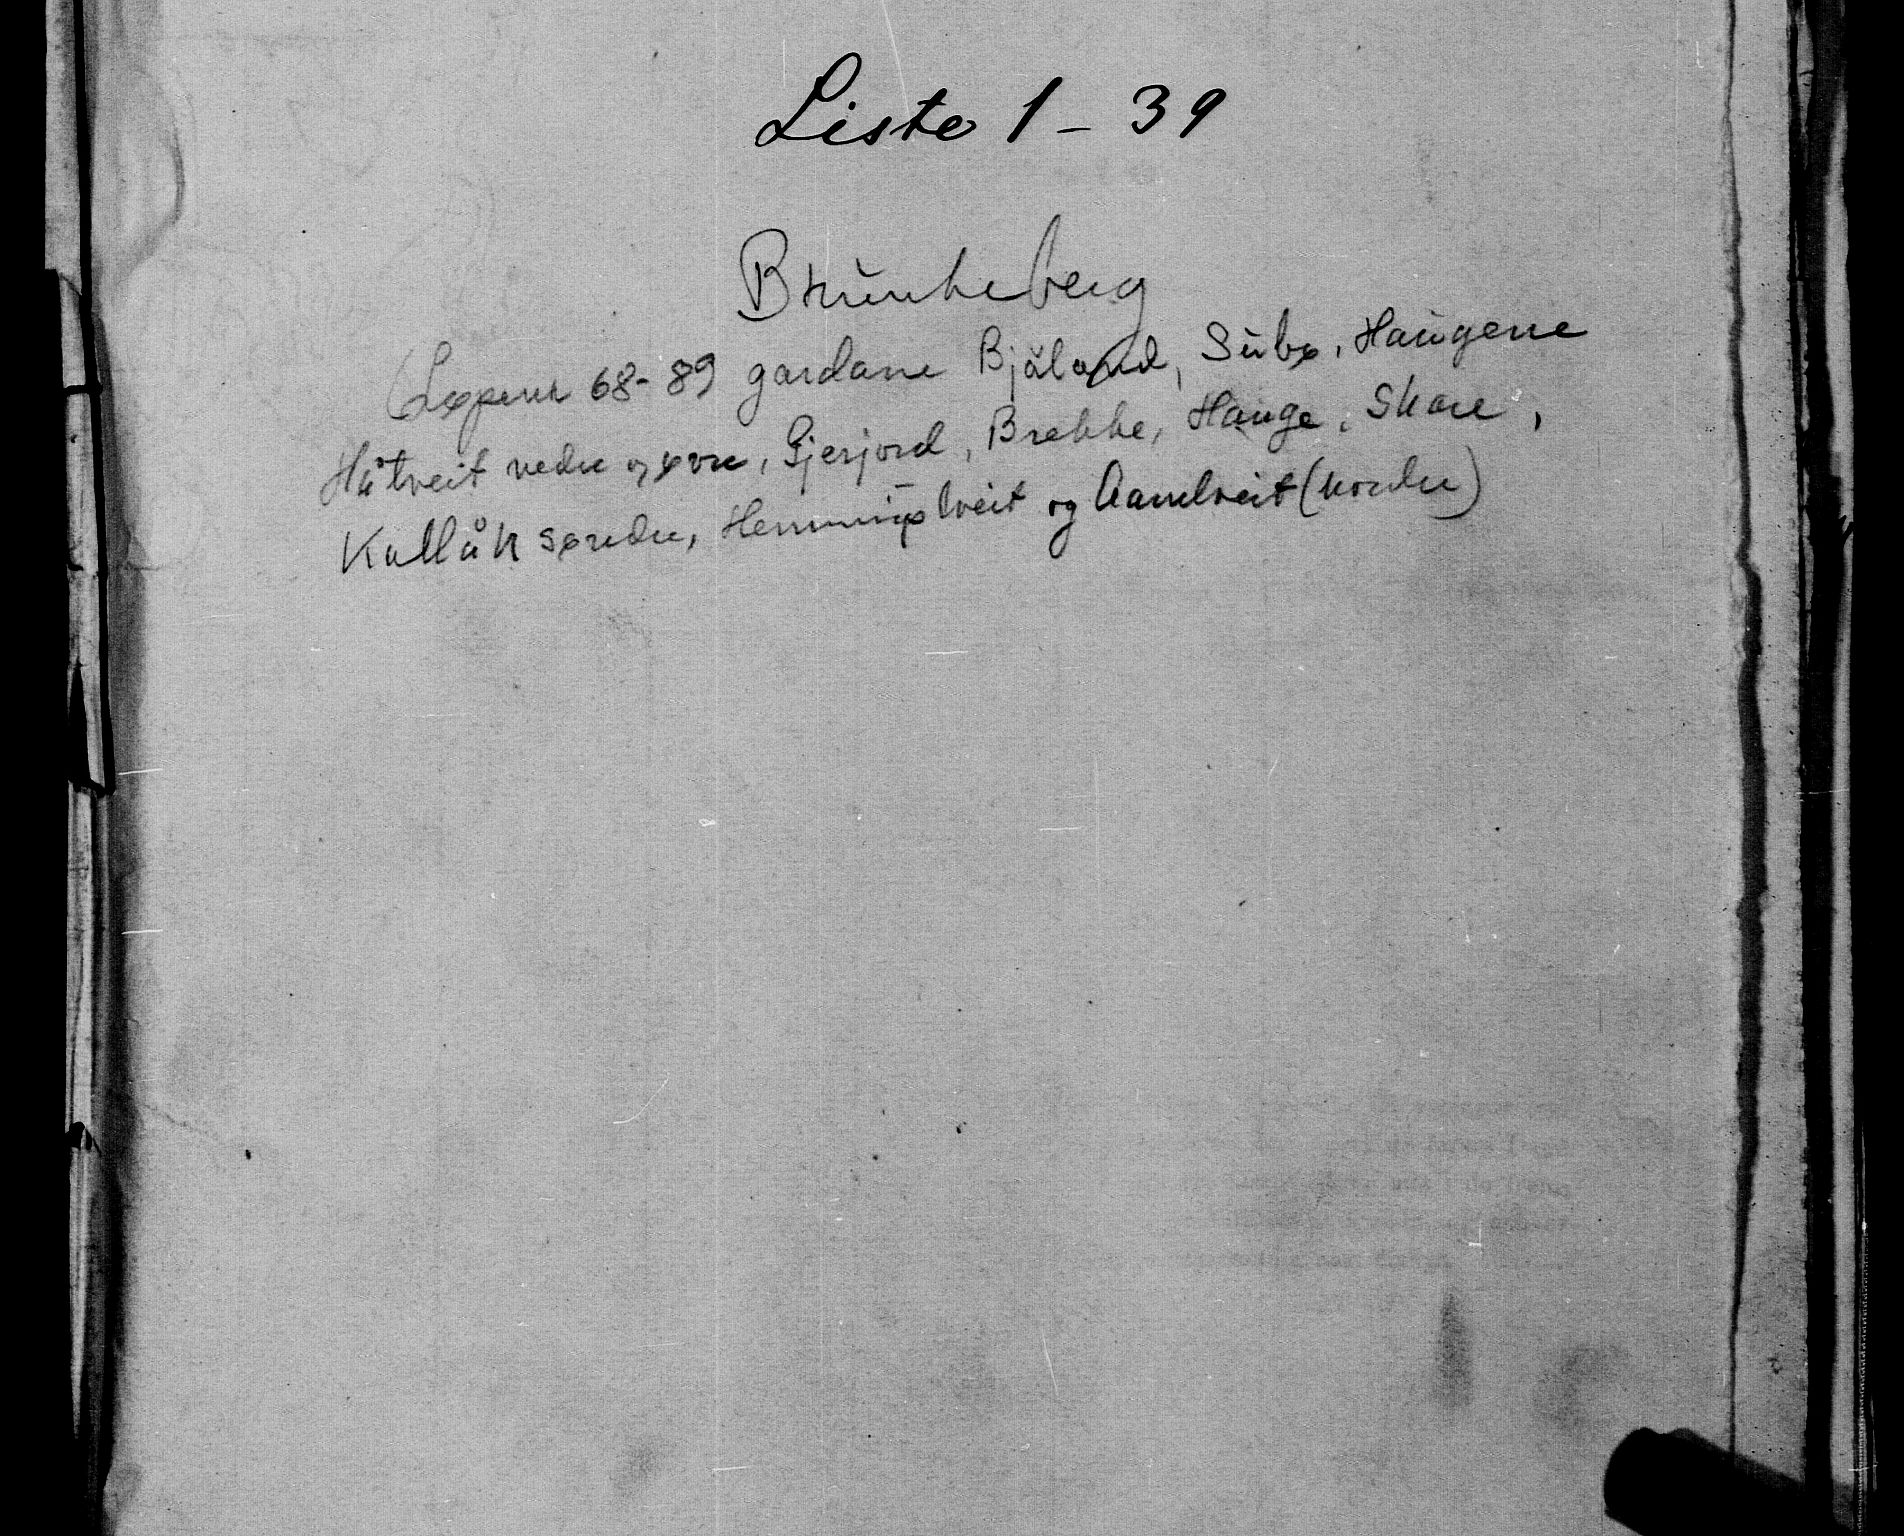 Liste 1 - 39
Brunkeberg
Løpenr 68-89 gardane Bjåland, Subø, Haugene
Håtveit nedre og øvre, Gjersjord, Brekke, Hauge, Skore,
Kallåk søndre, Hemmingstveit og Aamtveit (nordre)